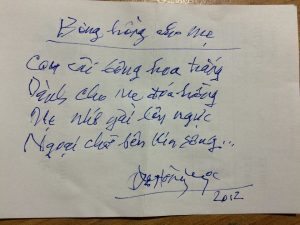 Bông hồng cho mẹ
Con cài bông hoa trắng
Dành cho mẹ đóa hồng
Mẹ nhớ gài lên ngực
Ngoại chờ bên kia sông...
Đỗ Hồng Ngọc
2012